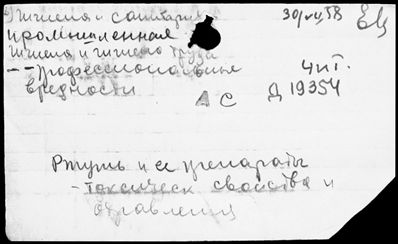 Гигиена и санитария
промышленная
гигиена и гигиена труда
-- Профессиональные
вредности
30/VII, 58
ЕЦ
Чит.
АС
Д 19354
Ртуть и ее препараты
- токсическ свойства и
отравления